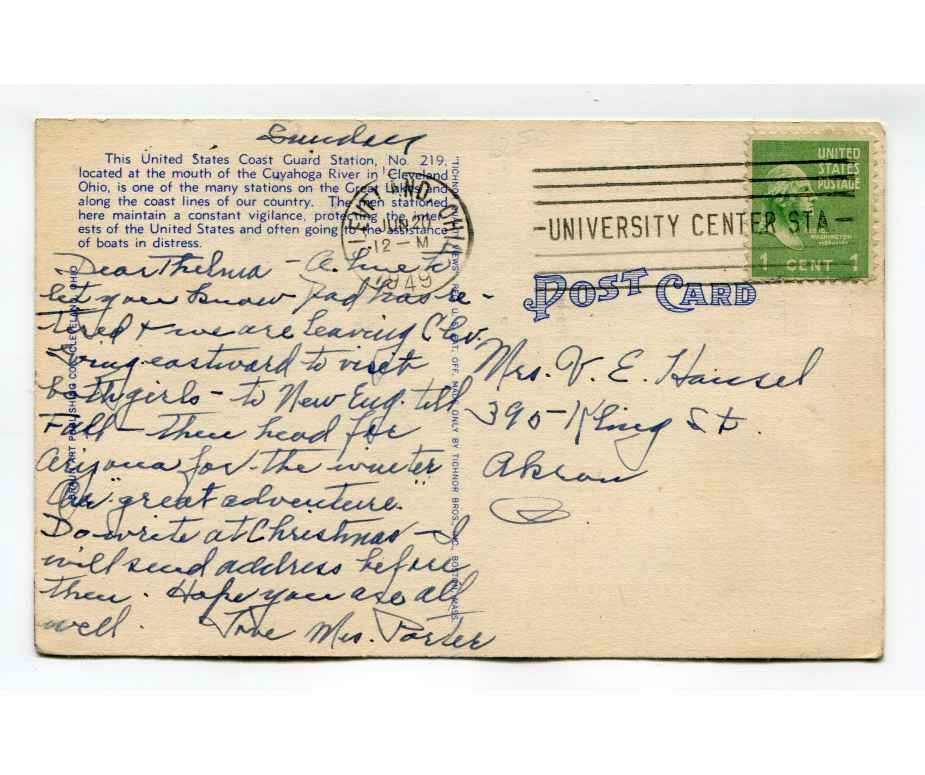 Sunday
This United States Coast Guard Station, No. 219,
located at the mouth of the Cuyahoga River in Cleveland
Ohio, is one of the many stations on the Great Lakes and
along the coast lines of our country. The men stationed
here maintain a constant vigilance, protecting the inter-
ests of the United States and often going to the assistance
of boats in distress.
Dear Thelma - A line to
let you know Dad has re-
tired & we are leaving Clev.
going eastward to visit
both girls - to New Eng. till
Fall - then head for
Arizona for the winter
Our "great adventure."
Do write at Christmas - I
will send address before
then. Hope you are all
well. Love Mrs. Porter
CLEVELAND, OHIO
JUN 20
12 - M
1949
- UNIVERSITY CENTER STA -
UNITED
STATES
POSTAGE
WASHINGTON
1 CENT 1
POST CARD
Mrs. V. E. Hansel
390 Kling St.
Akron
O.
BRAUN ART PUBLISHING CO., CLEVELAND, OHIO
ONLY BY TICHNOR BROS., INC., BOSTON, MASS.